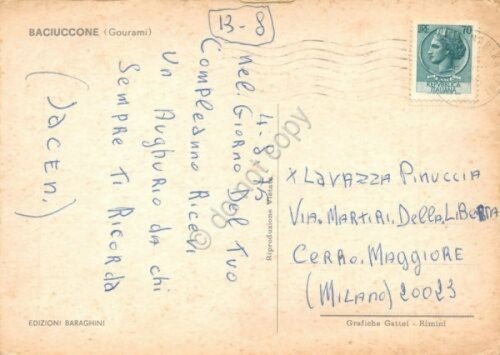 BACIUCCONE (Gourami)
B-8
4-8-75
Nel Giorno Del Tuo
Compleanno Ricevi
Un Aughurio da chi
Sempre Ti Ricorda
(Jacen.)
EDIZIONI BARAGHINI
Riproduzione Vietata
LIRE 70
REPUBBLICA
ITALIANA
x Lavazza Pinuccia
Via. Martiri. Della. Liberta
Cerro. Maggiore
(Milano) 20023
Grafiche Gattei - Rimini
© do not copy